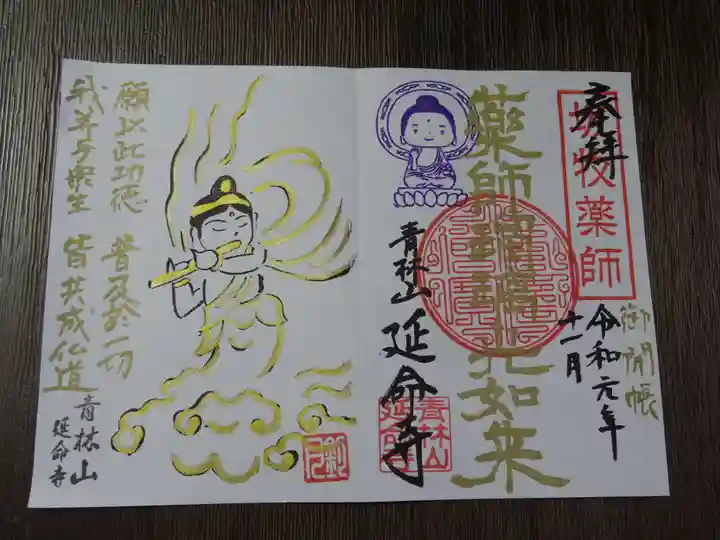 奉拝
坂牧薬師
御開帳
令和元年
十一月
薬師瑠璃光如来
青林山
延命寺
青林山
延命寺
願以此功徳
普及於一切
我等与衆生
皆共成仏道
青林山
延命寺